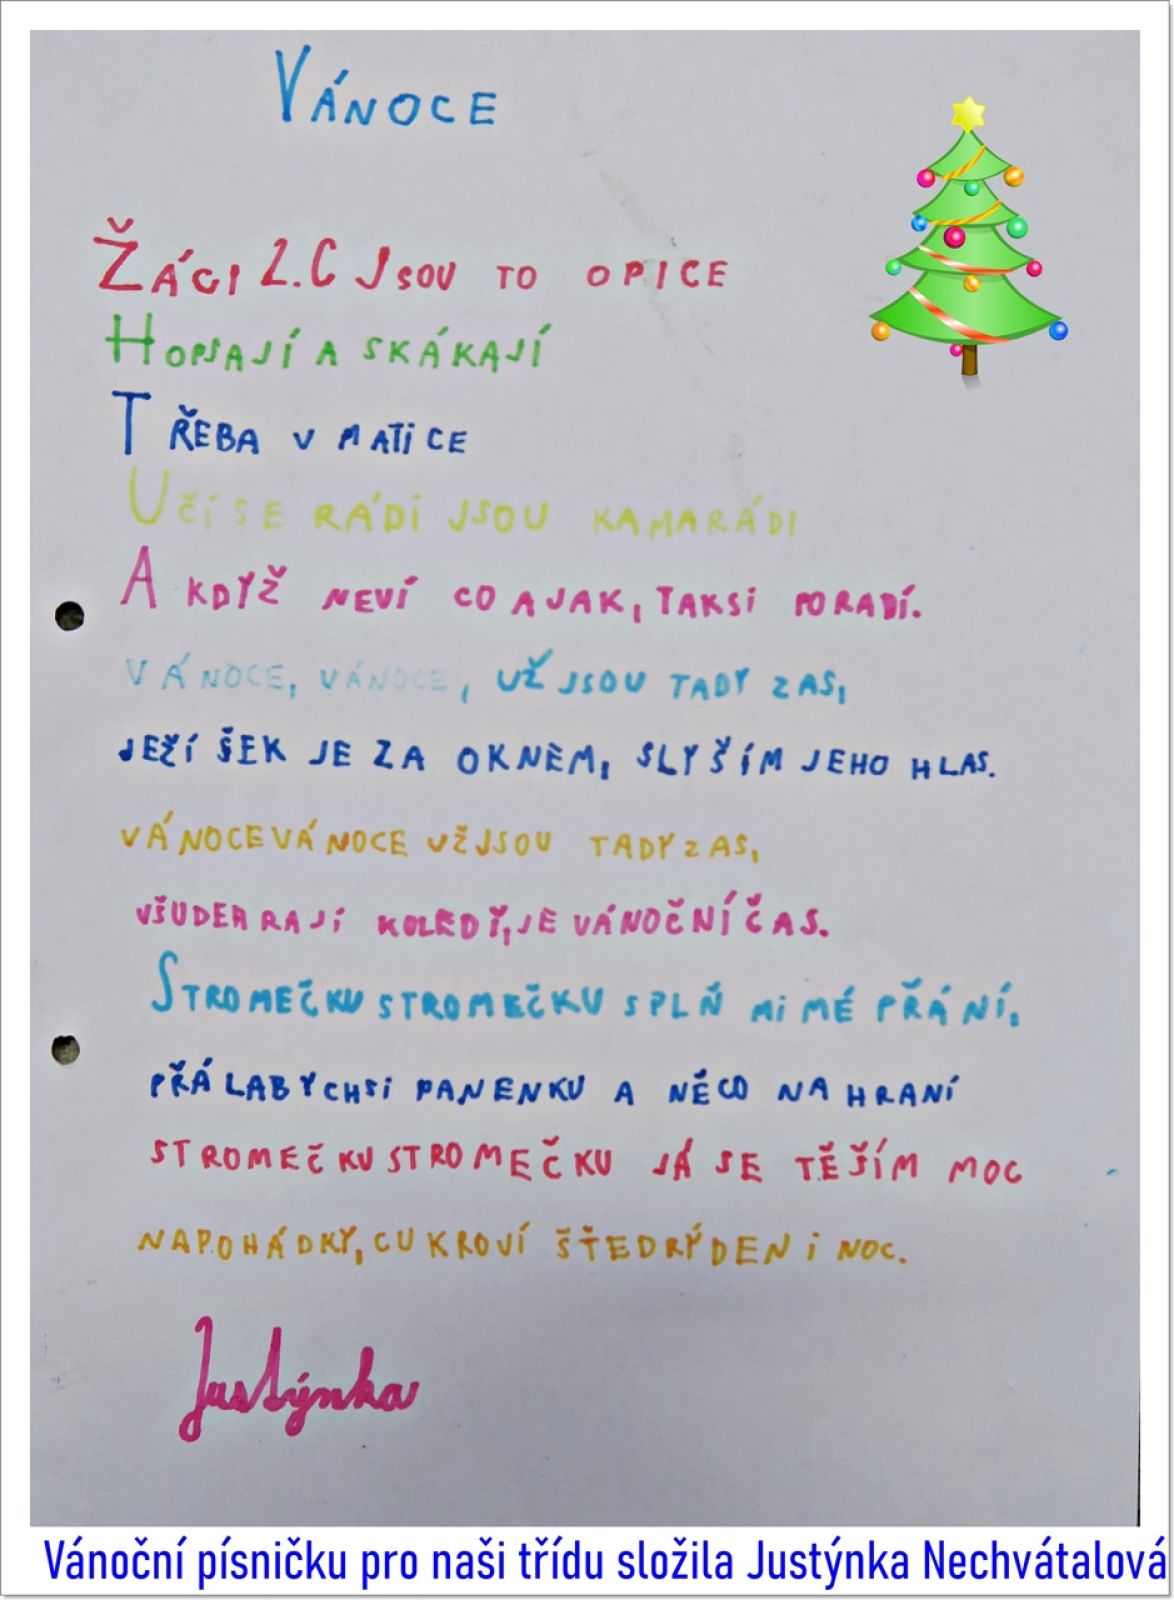 VÁNOCE
ŽÁCI 2.C JSOU TO OPICE
HOPSAJÍ A SKÁKAJÍ
TŘEBA V MATICE
UČÍ SE RÁDI JSOU KAMARÁDI
A KDYŽ NEVÍ CO A JAK, TAKSI PORADÍ.
VÁNOCE, VÁNOCE, UŽ JSOU TADY ZAS,
JEŽÍŠEK JE ZA OKNEM, SLYŠÍM JEHO HLAS.
VÁNOCEVÁNOCE UŽ JSOU TADY ZAS,
VŠUDE HRAJÍ KOLEDY, JE VÁNOČNÍ ČAS.
STROMEČKU STROMEČKU SPLŇ MI MÉ PŘÁNÍ,
PŘÁLA BYCH SI PANENKU A NĚCO NA HRANÍ
STROMEČKU STROMEČKU JÁ SE TĚŠÍM MOC
NA POHÁDKY, CUKROVÍ ŠTEDRÝ DEN I NOC.
Justýnka
Vánoční písničku pro naši třídu složila Justýnka Nechvátalová